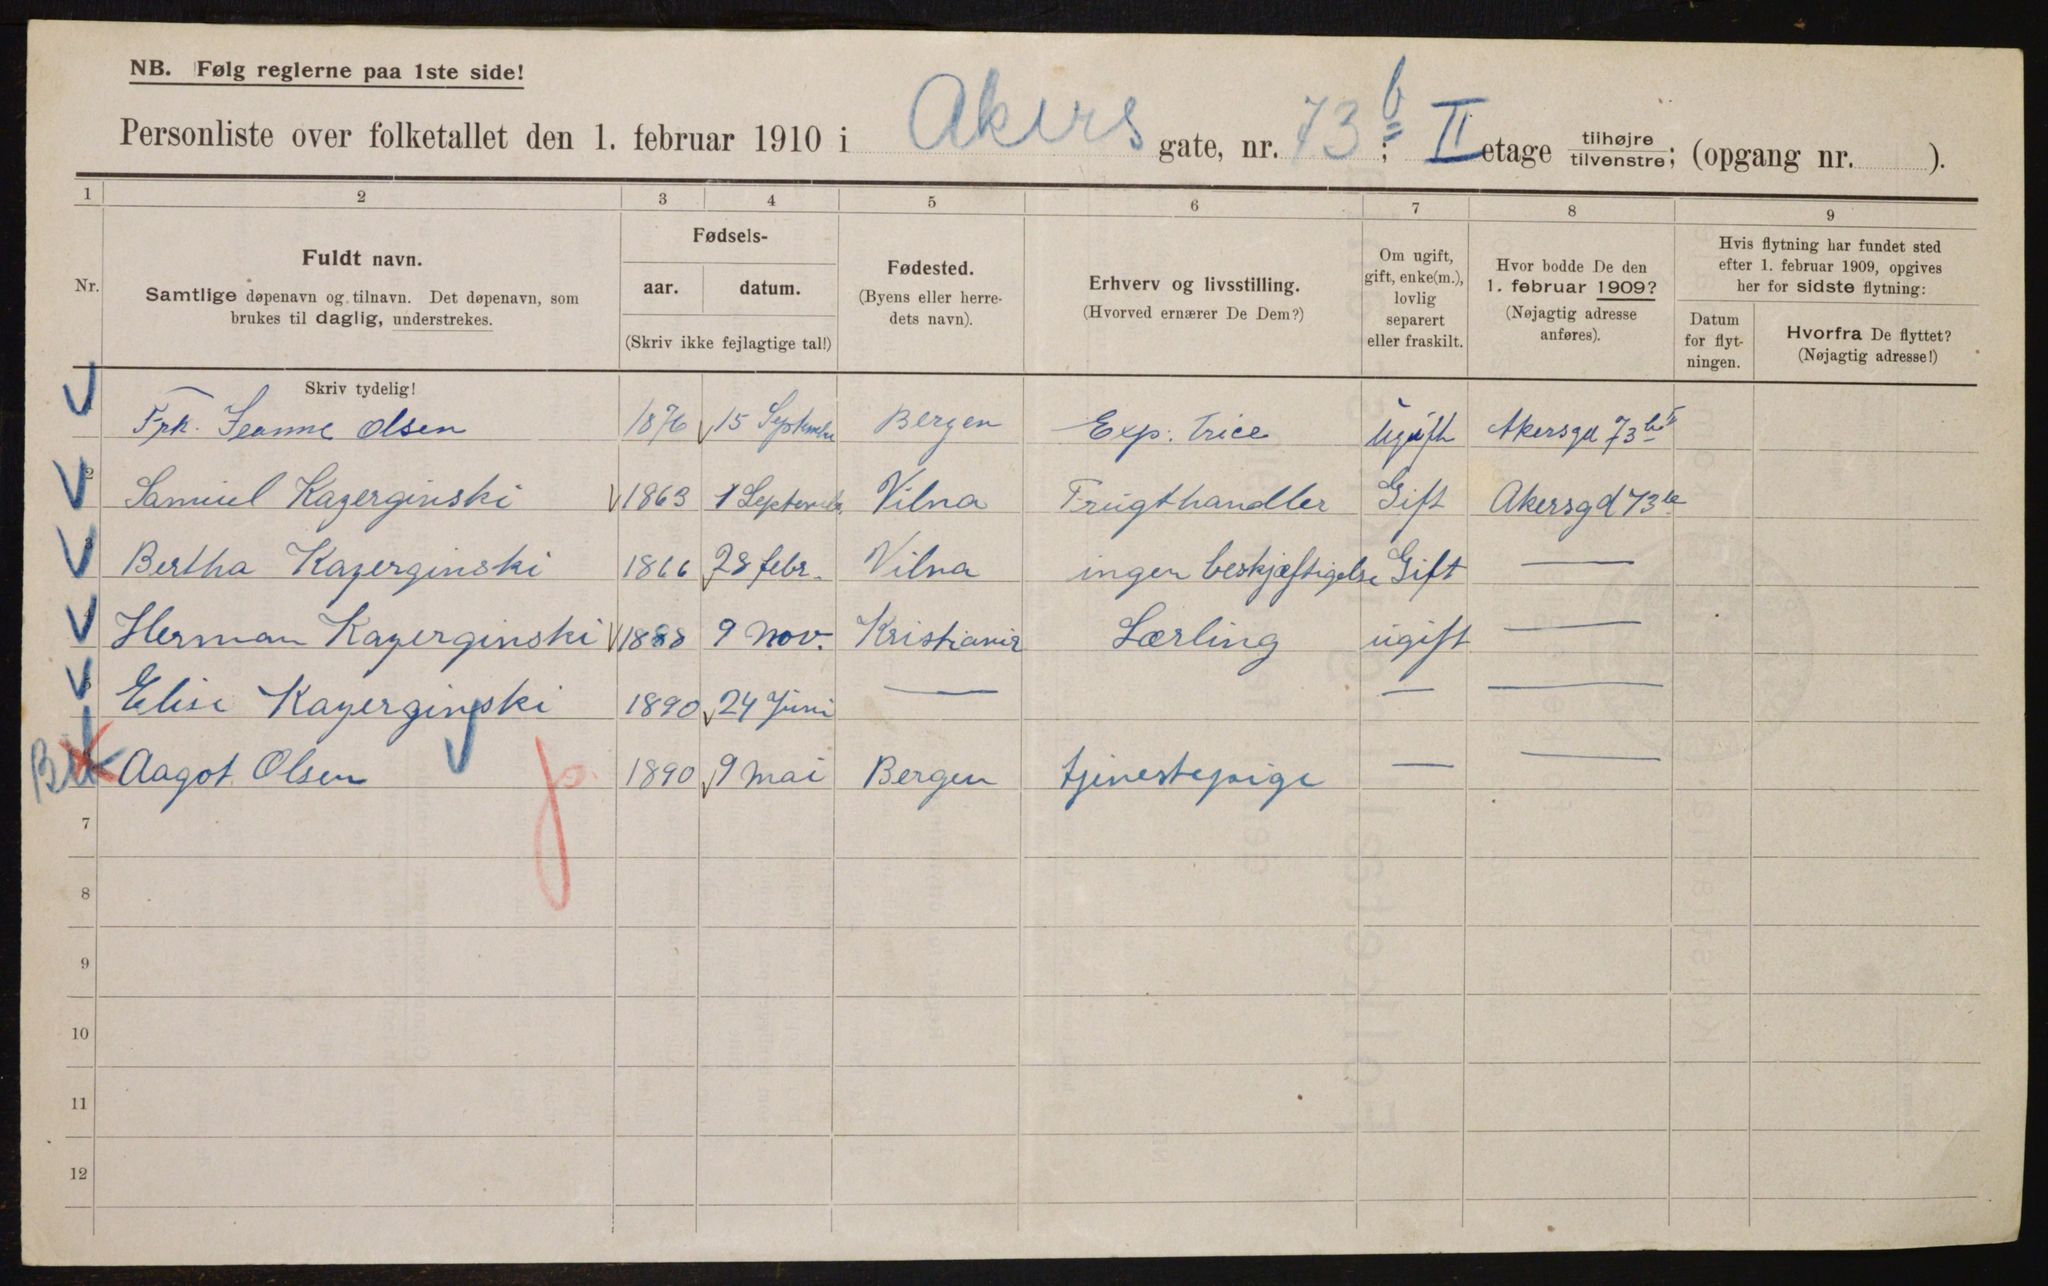 NB. Følg reglerne paa 1ste side!
Personliste over folketallet den 1. februar 1910 i Akers gate, nr. 73 b; II etage tilhøjre tilvenstre; (opgang nr. ).
1 2 3 4 5 6 7 8 9
Nr.
Fuldt navn.
Samtlige døpenavn og tilnavn. Det døpenavn, som
brukes til daglig, understrekes.
Fødsels-
aar. datum.
(Skriv ikke fejlagtige tal!)
Fødested.
(Byens eller herre-
dets navn).
Erhverv og livsstilling.
(Hvorved ernærer De Dem?)
Om ugift,
gift, enke(m.),
lovlig
separert
eller fraskilt.
Hvor bodde De den
1. februar 1909?
(Nøjagtig adresse
anføres).
Hvis flytning har fundet sted
efter 1. februar 1909, opgives
her for sidste flytning:
Datum
for flyt-
ningen.
Hvorfra De flyttet?
(Nøjagtig adresse!)
Skriv tydelig!
Frk. Jeanne Olsen 1876 15 September Bergen Exp. trice Ugift Akersgd 73 b II
2 Samuel Kazerginski 1863 1 September Vilna Frugthandler Gift Akersgd 73 b
3 Bertha Kazerginski 1866 28 febr. Vilna ingen beskjæftigelse Gift —
Herman Kazerginski 1888 9 Nov. Kristiania Lærling ugift —
5 Elise Kazerginski 1890 24 Juni — — —
Aagot Olsen 1890 9 mai Bergen tjenestepige — —
7
8
9
10
11
12